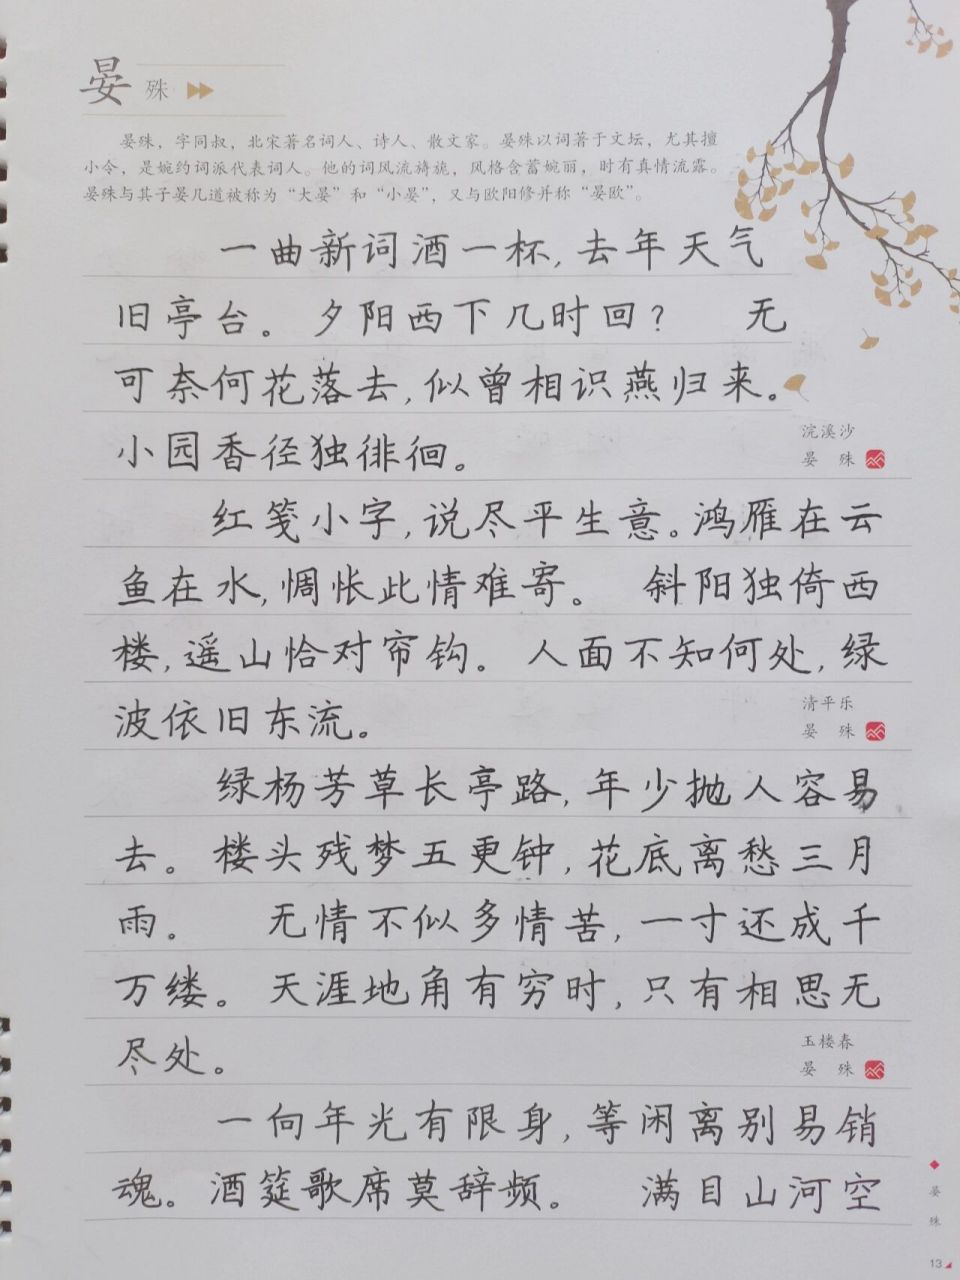 晏 殊
晏殊，字同叔，北宋著名词人、诗人、散文家。晏殊以词著于文坛，尤其擅
小令，是婉约词派代表词人。他的词风流旖旎，风格含蓄婉丽，时有真情流露。
晏殊与其子晏几道被称为“大晏”和“小晏”，又与欧阳修并称“晏欧”。
一曲新词酒一杯,去年天气
旧亭台。夕阳西下几时回? 无
可奈何花落去,似曾相识燕归来。
小园香径独徘徊。
浣溪沙
晏 殊
红笺小字,说尽平生意。鸿雁在云
鱼在水,惆怅此情难寄。 斜阳独倚西
楼,遥山恰对帘钩。人面不知何处,绿
波依旧东流。
清平乐
晏 殊
绿杨芳草长亭路,年少抛人容易
去。楼头残梦五更钟,花底离愁三月
雨。 无情不似多情苦,一寸还成千
万缕。天涯地角有穷时,只有相思无
尽处。
玉楼春
晏 殊
一向年光有限身,等闲离别易销
魂。酒筵歌席莫辞频。 满目山河空
晏 殊
13